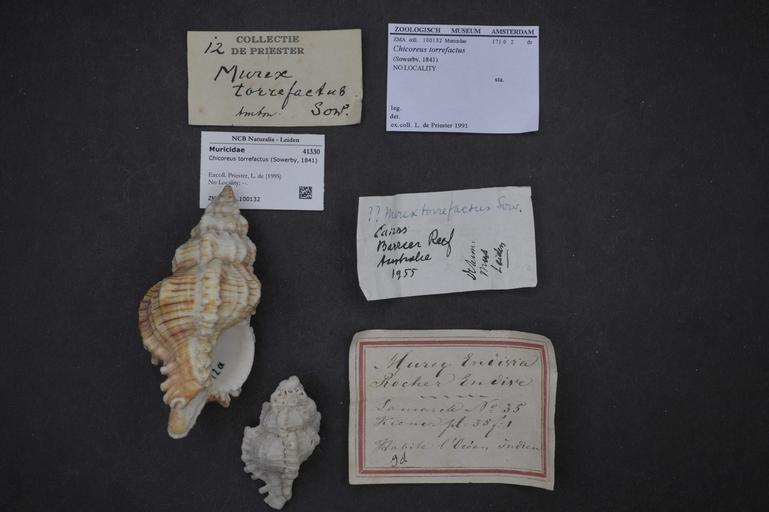 COLLECTIE
DE PRIESTER
12
Murex
torrefactus
Ambon. Sow.
ZOOLOGISCH MUSEUM AMSTERDAM
ZMA coll. 100132 Muricidae 171.0 2 dr
Chicoreus torrefactus
(Sowerby, 1841)
NO LOCALITY
sta.
leg.
det.
ex.coll. L. de Priester 1991
NCB Naturalis - Leiden
Muricidae 41330
Chicoreus torrefactus (Sowerby, 1841)
Excoll. Priester, L. de (1995)
No Locality; --.
100132
?? Murex torrefactus Sow.
Cairns
Barrier Reef
Australie
1955
Determ.
Mus
Leiden
12a
Murex Endivia
Rocher Endive
Lamarck No 35
Kiener pl. 35 f. 1
Habite l'Océan Indien
gd